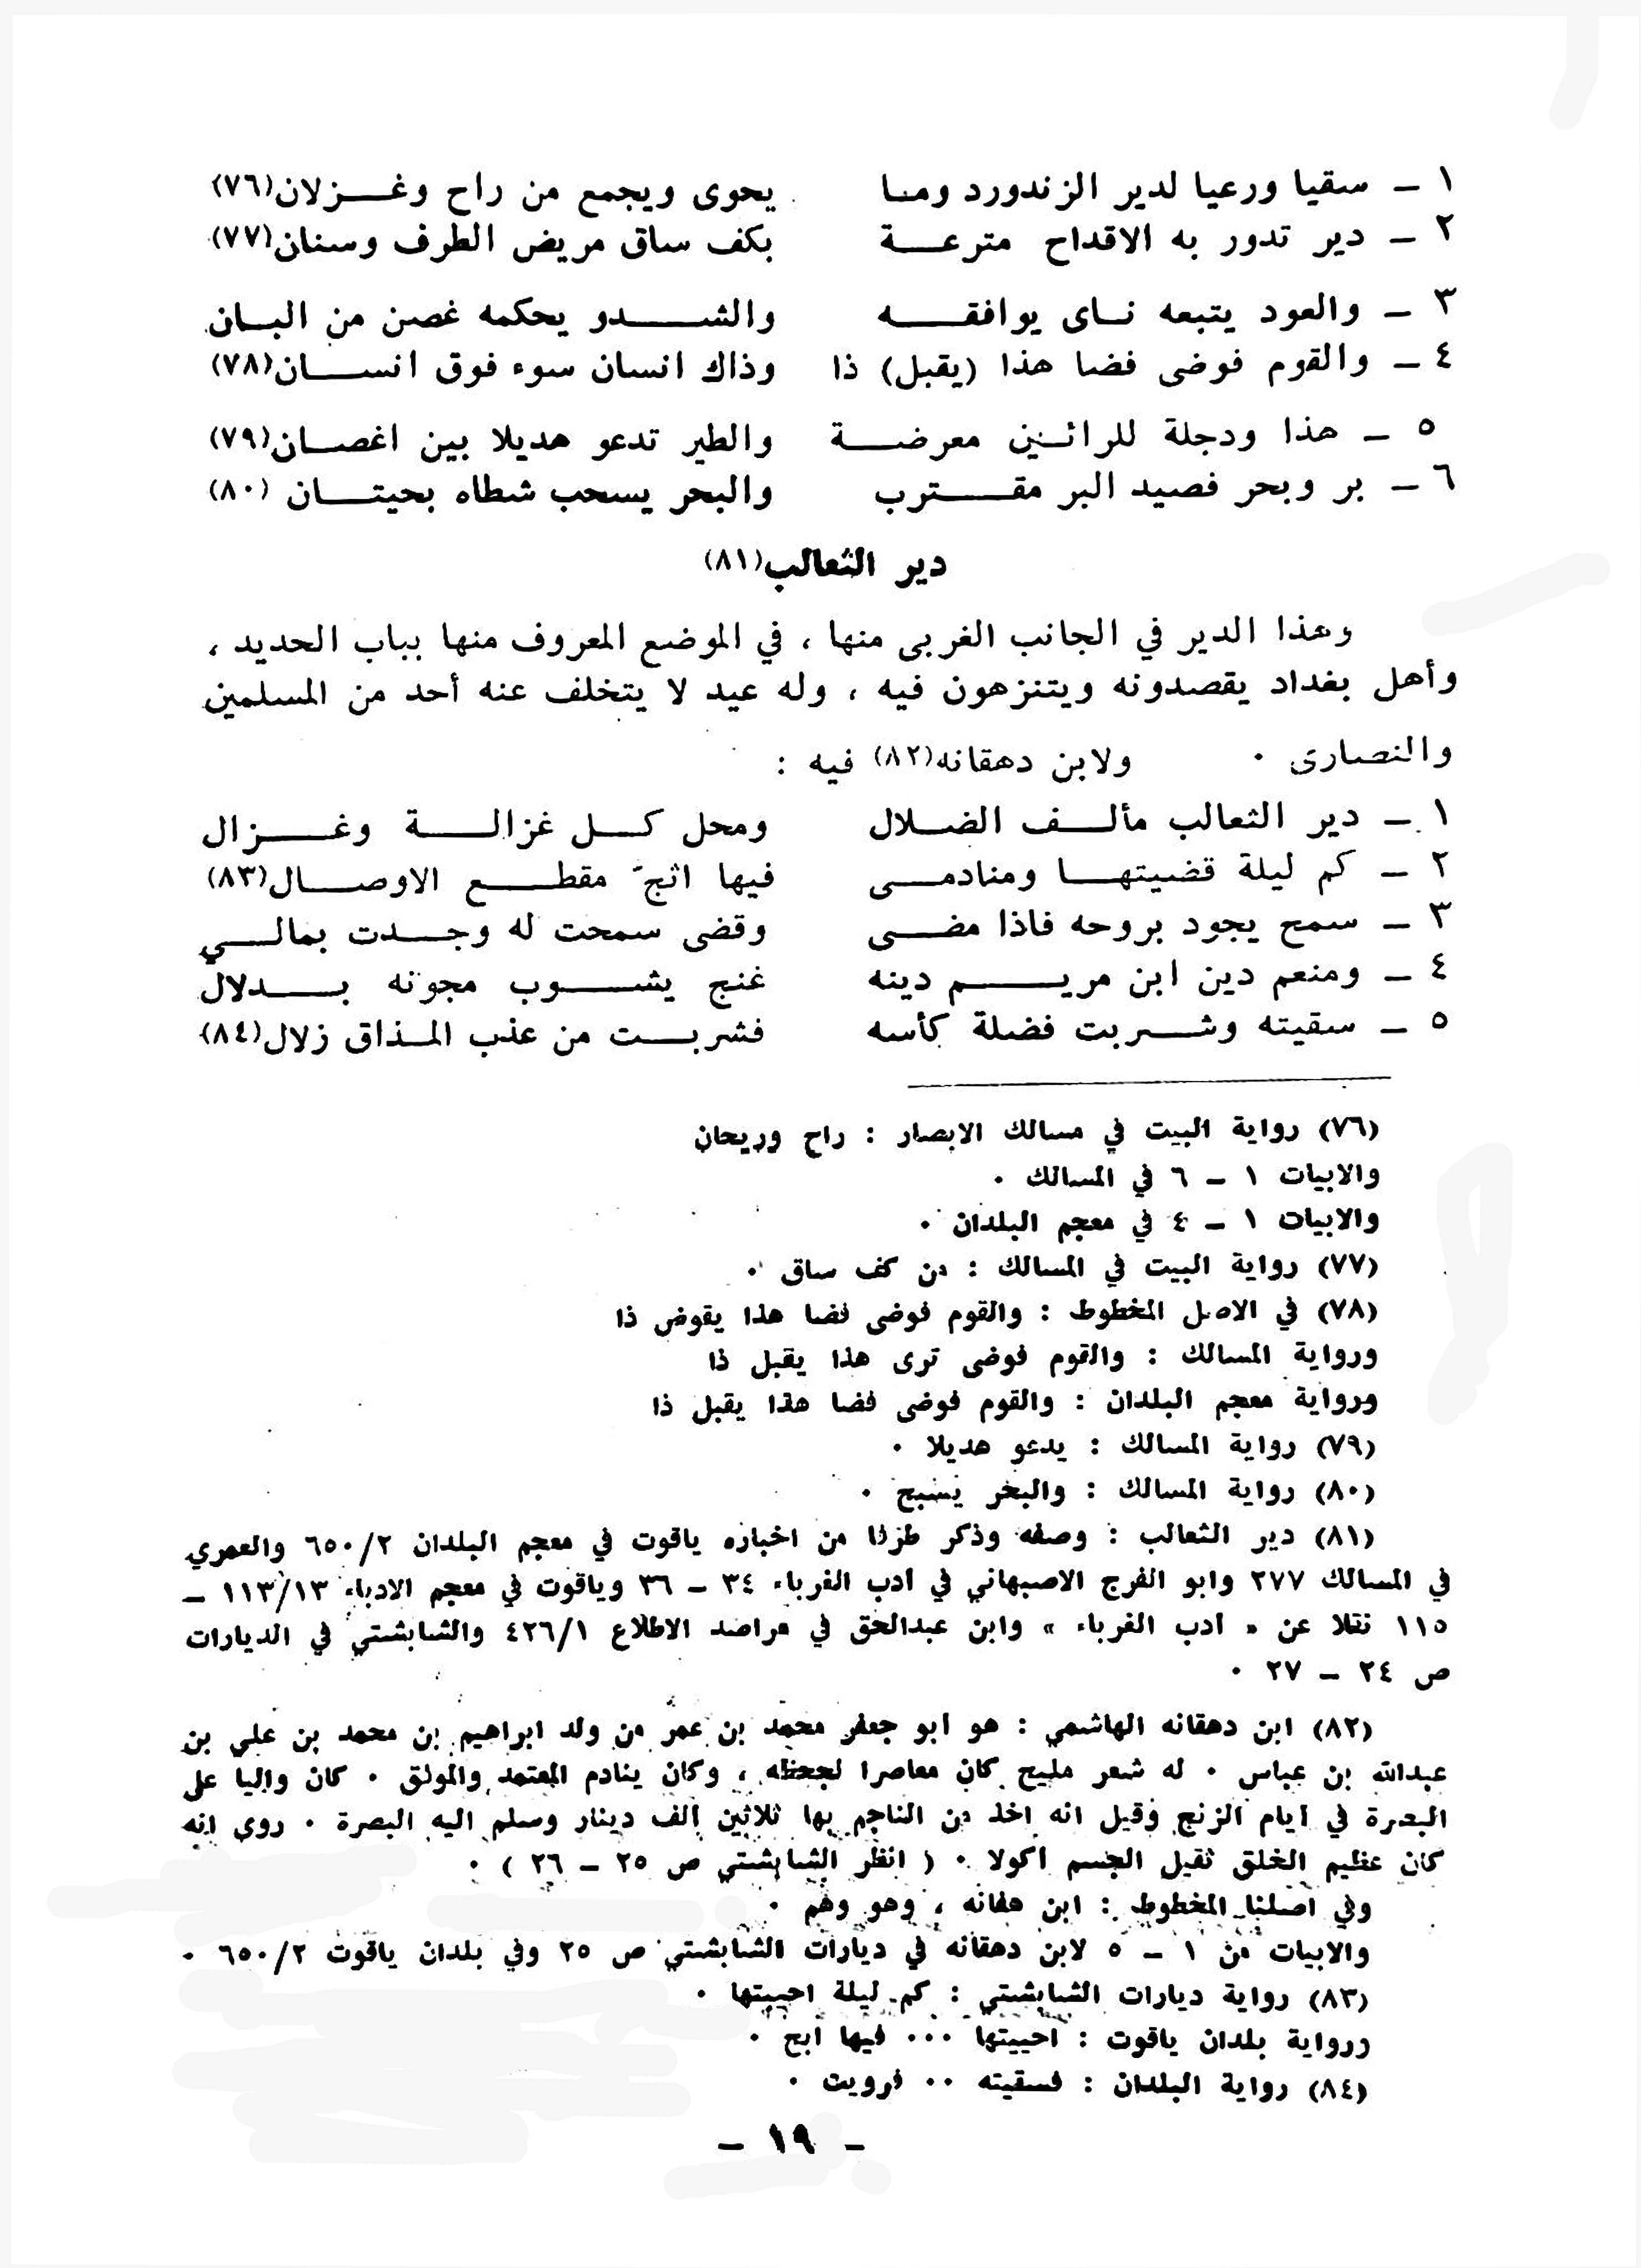 ١ ـ سقيا ورعيا لدير الزندورد وما يحوى ويجمع من راح وغـــزلان(٧٦)
٢ ـ دير تدور به الاقداح مترعـــة بكف ساق مريض الطرف وسنان(٧٧)
٣ ـ والعود يتبعه نـاى يوافقـــه والشــــدو يحكمه غصن من البـان
٤ ـ والقوم فوضى فضا هذا (يقبل) ذا وذاك انسان سوء فوق انســـان(٧٨)
٥ ـ هذا ودجلة للرائـين معرضـــة والطير تدعو هديلا بين اغصـان(٧٩)
٦ ـ بر وبحر فصيد البر مقــــترب والبحر يسحب شطاه بحيتـــان (٨٠)
دير الثعالب(٨١)
وهذا الدير في الجانب الغربى منها ، في الموضع المعروف منها بباب الحديد ،
وأهل بغداد يقصدونه ويتنزهون فيه ، وله عيد لا يتخلف عنه أحد من المسلمين
والنصارى ٠ ولابن دهقانه(٨٢) فيه :
١ ـ دير الثعالب مألــف الضـلال ومحل كــل غزالـــة وغـــزال
٢ ـ كم ليلة قضيتهـــا ومنادمــى فيها اثجّ مقطـــع الاوصــال(٨٣)
٣ ـ سمح يجود بروحه فاذا مضــى وقضى سمحت له وجــدت بمالــي
٤ ـ ومنعم دين ابن مريــــم دينه غنج يشـــوب مجونه بـــدلال
٥ ـ سقيته وشـــربت فضلة كأسه فشربــت من عذب المـذاق زلال(٨٤)
(٧٦) رواية البيت في مسالك الابصار : راح وريحان
والابيات ١ ـ ٦ في المسالك ٠
والابيات ١ ـ ٤ في معجم البلدان ٠
(٧٧) رواية البيت في المسالك : من كف ساق ٠
(٧٨) في الاصل المخطوط : والقوم فوضى فضا هذا يقوض ذا
ورواية المسالك : والقوم فوضى ترى هذا يقبل ذا
ورواية معجم البلدان : والقوم فوضى فضا هذا يقبل ذا
(٧٩) رواية المسالك : يدعو هديلا ٠
(٨٠) رواية المسالك : والبحر يسبح ٠
(٨١) دير الثعالب : وصفه وذكر طرفا من اخباره ياقوت في معجم البلدان ٦٥٠/٢ والعمري
في المسالك ٢٧٧ وابو الفرج الاصبهاني في ادب الغرباء ٣٤ ـ ٣٦ وياقوت في معجم الادباء ١١٣/١٣ ـ
١١٥ نقلا عن « ادب الغرباء » وابن عبدالحق في مراصد الاطلاع ٤٢٦/١ والشابشتي في الديارات
ص ٢٤ ـ ٢٧ ٠
(٨٢) ابن دهقانه الهاشمي : هو ابو جعفر محمد بن عمر من ولد ابراهيم بن محمد بن علي بن
عبدالله بن عباس ٠ له شعر مليح كان معاصرا لجحظه ، وكان ينادم المعتمد والموفق ٠ كان واليا على
البصرة في ايام الزنج وقيل انه اخذ من الناجم بها ثلاثين الف دينار وسلم اليه البصرة ٠ روى انه
كان عظيم الخلق ثقيل الجسم اكولا ٠ ( انظر الشابشتي ص ٢٥ ـ ٢٦ ) ٠
وفي اصلنا المخطوط : ابن هفانه ، وهو وهم ٠
والابيات من ١ ـ ٥ لابن دهقانه في ديارات الشابشتي ص ٢٥ وفي بلدان ياقوت ٦٥٠/٢ ٠
(٨٣) رواية ديارات الشابشتي : كم ليلة احييتها ٠
ورواية بلدان ياقوت : احييتها ٠٠٠ فيها ابح ٠
(٨٤) رواية البلدان : فسقيته ٠٠ فرويت ٠
ـ ١٩ ـ